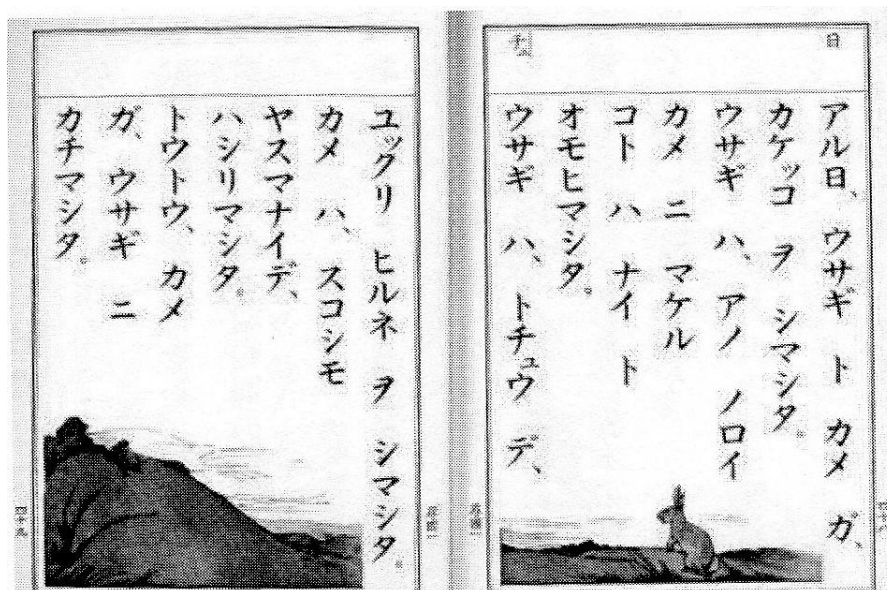 日
チ
アル日、ウサギ ト カメ ガ、
カケッコ ヲ シマシタ。
ウサギ ハ、アノ ノロイ
カメ ニ マケル
コト ハ ナイ ト
オモヒマシタ。
ウサギ ハ、トチュウ デ、
ユックリ ヒルネ ヲ シマシタ。
カメ ハ、スコシモ
ヤスマナイデ、
ハシリマシタ。
トウトウ、カメ
ガ、ウサギ ニ
カチマシタ。